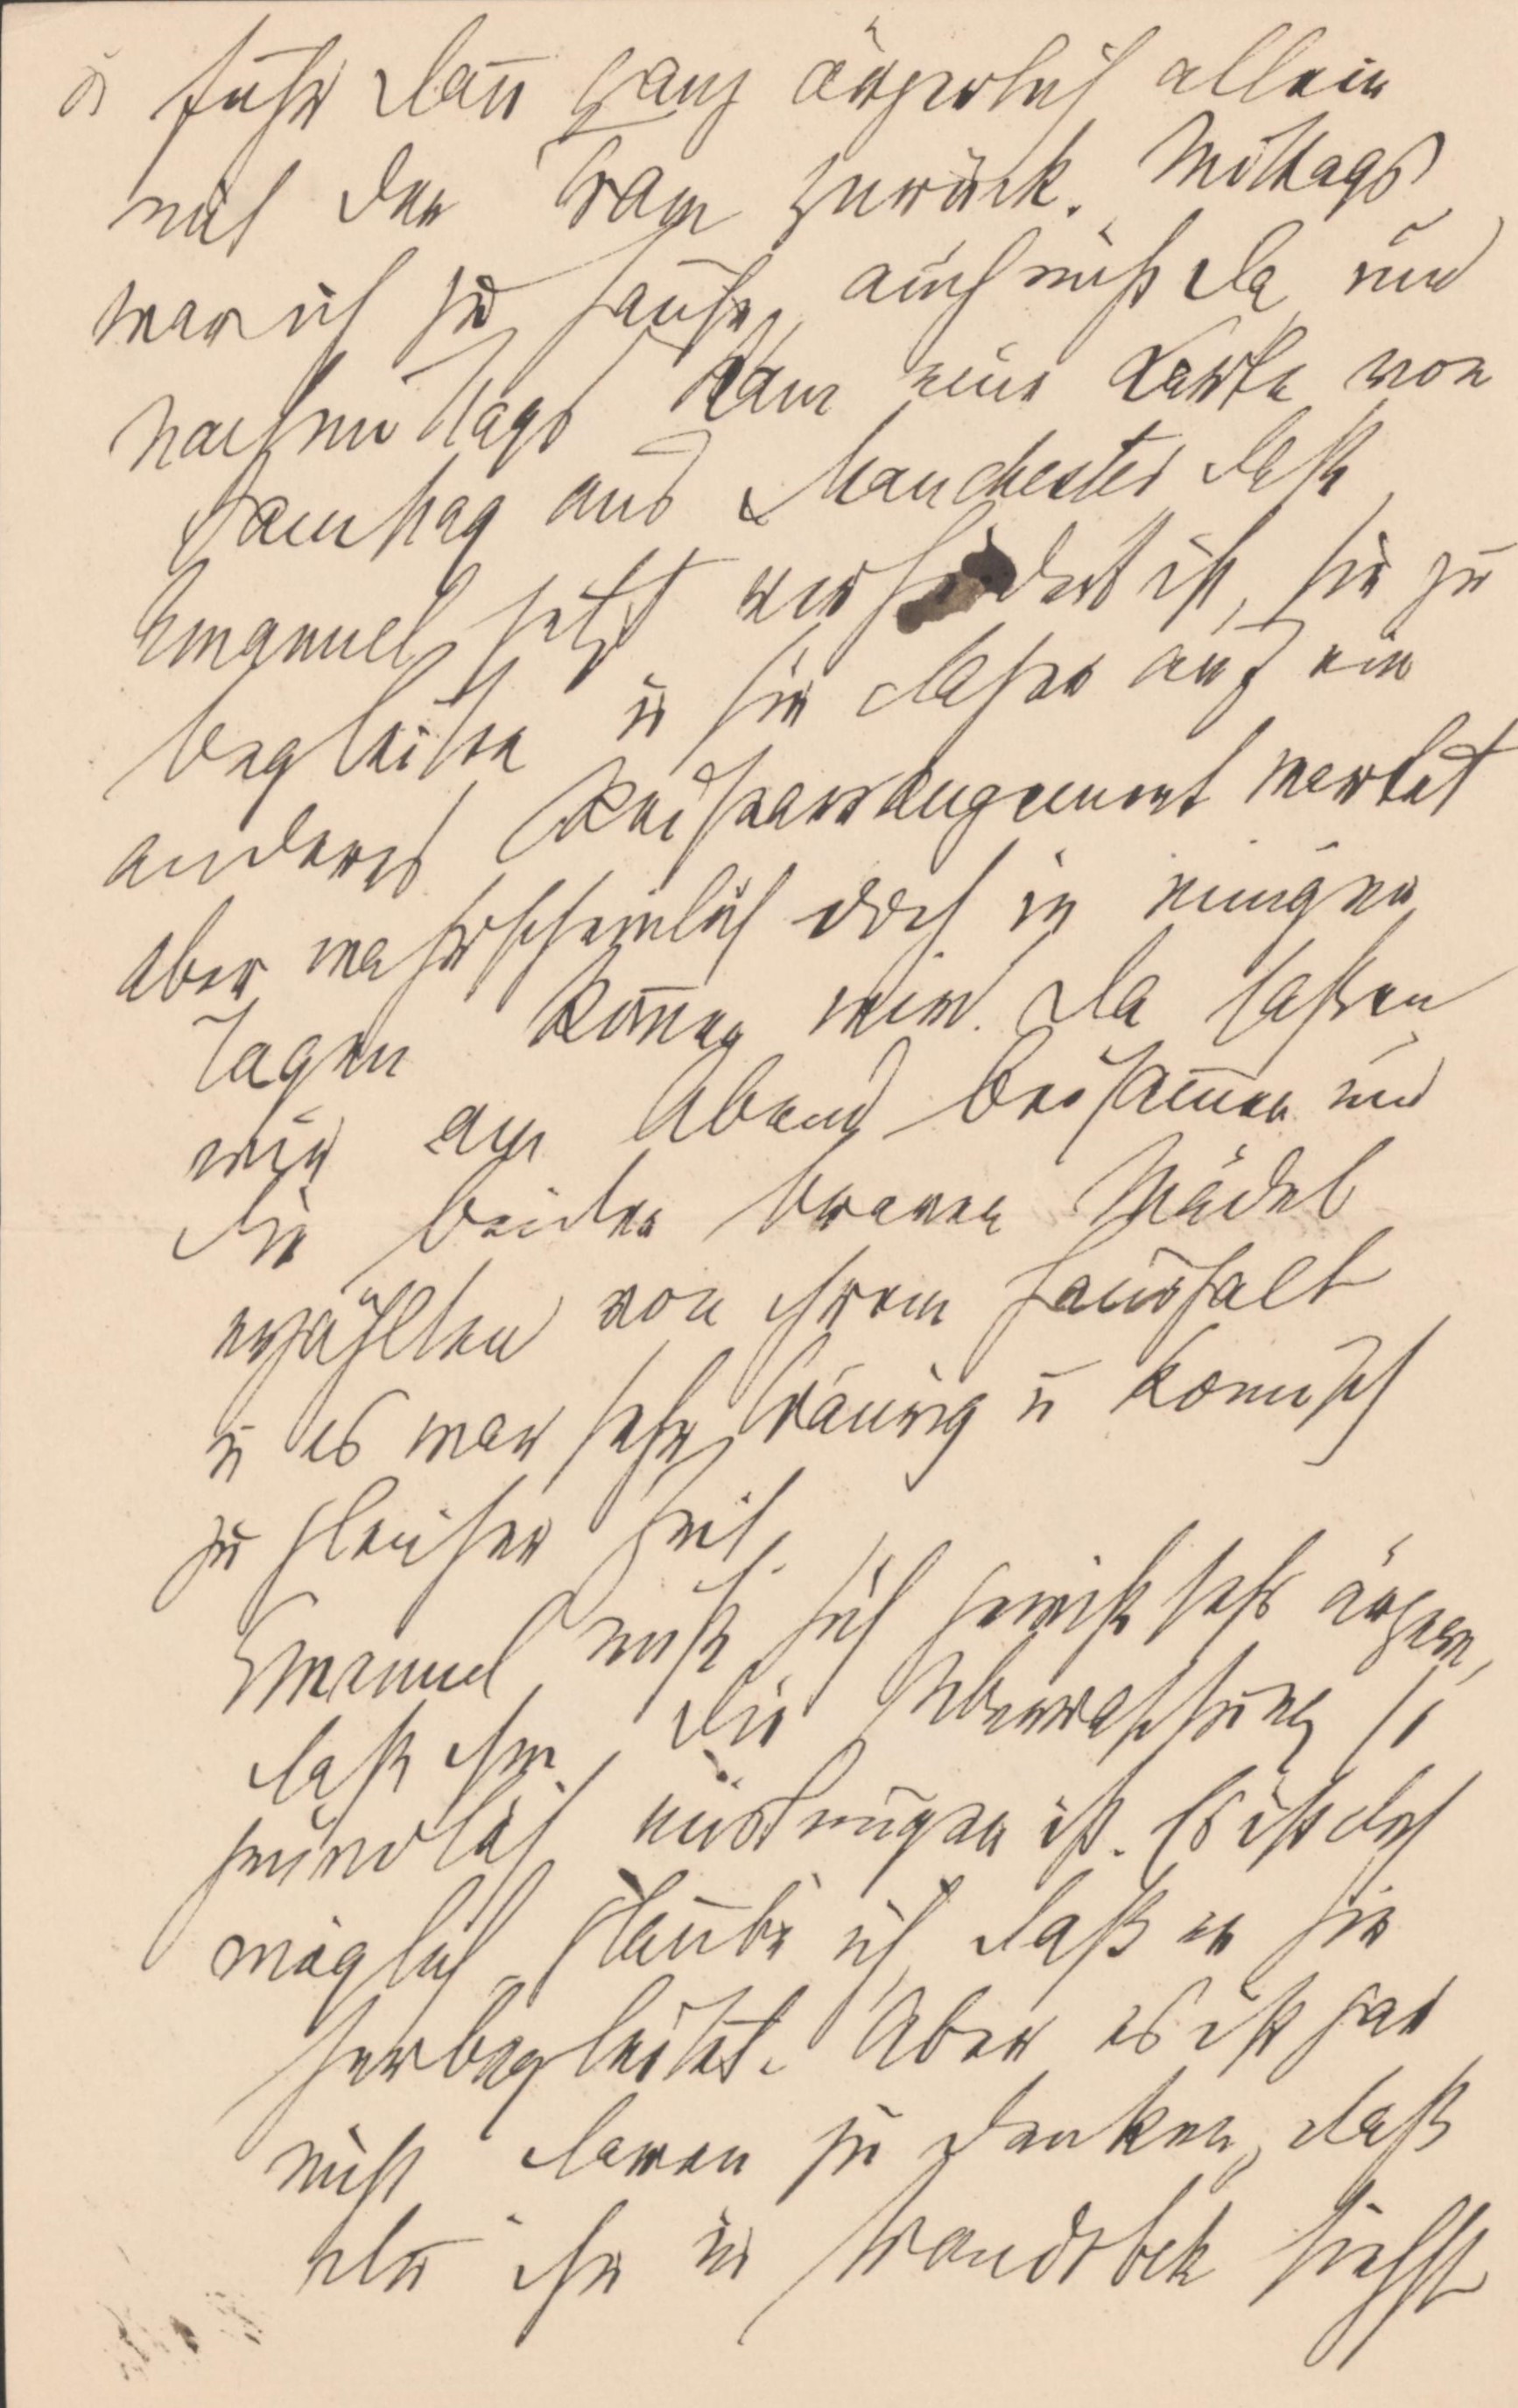 u fuhr dann ganz ärgerlich allein
mit der Tram zurück. Mittags
war ich zu Hause, auch nichts da und
Nachmittags kam eine Karte von
Samstag aus Manchester daß
Emanuel jetzt verhindert ist, sie zu
begleiten u sie daher auf ein
anderes Reisearrangement wartet
aber wahrscheinlich doch in einigen
Tagen kommen wird. Da saßen
wir am Abend beisammen und
die beiden braven Mädel
erzählten von ihrem Haushalt
u es war sehr traurig u komisch
zu gleicher Zeit.
Emanuel muß sich gewiß sehr ärgern,
daß ihm die Überraschung so
gründlich mislungen ist. Es ist doch
möglich glaube ich, daß er sie
herbegleitet. Aber es ist gar
nicht daran zu denken, daß
du ihn in Wandsbek siehst